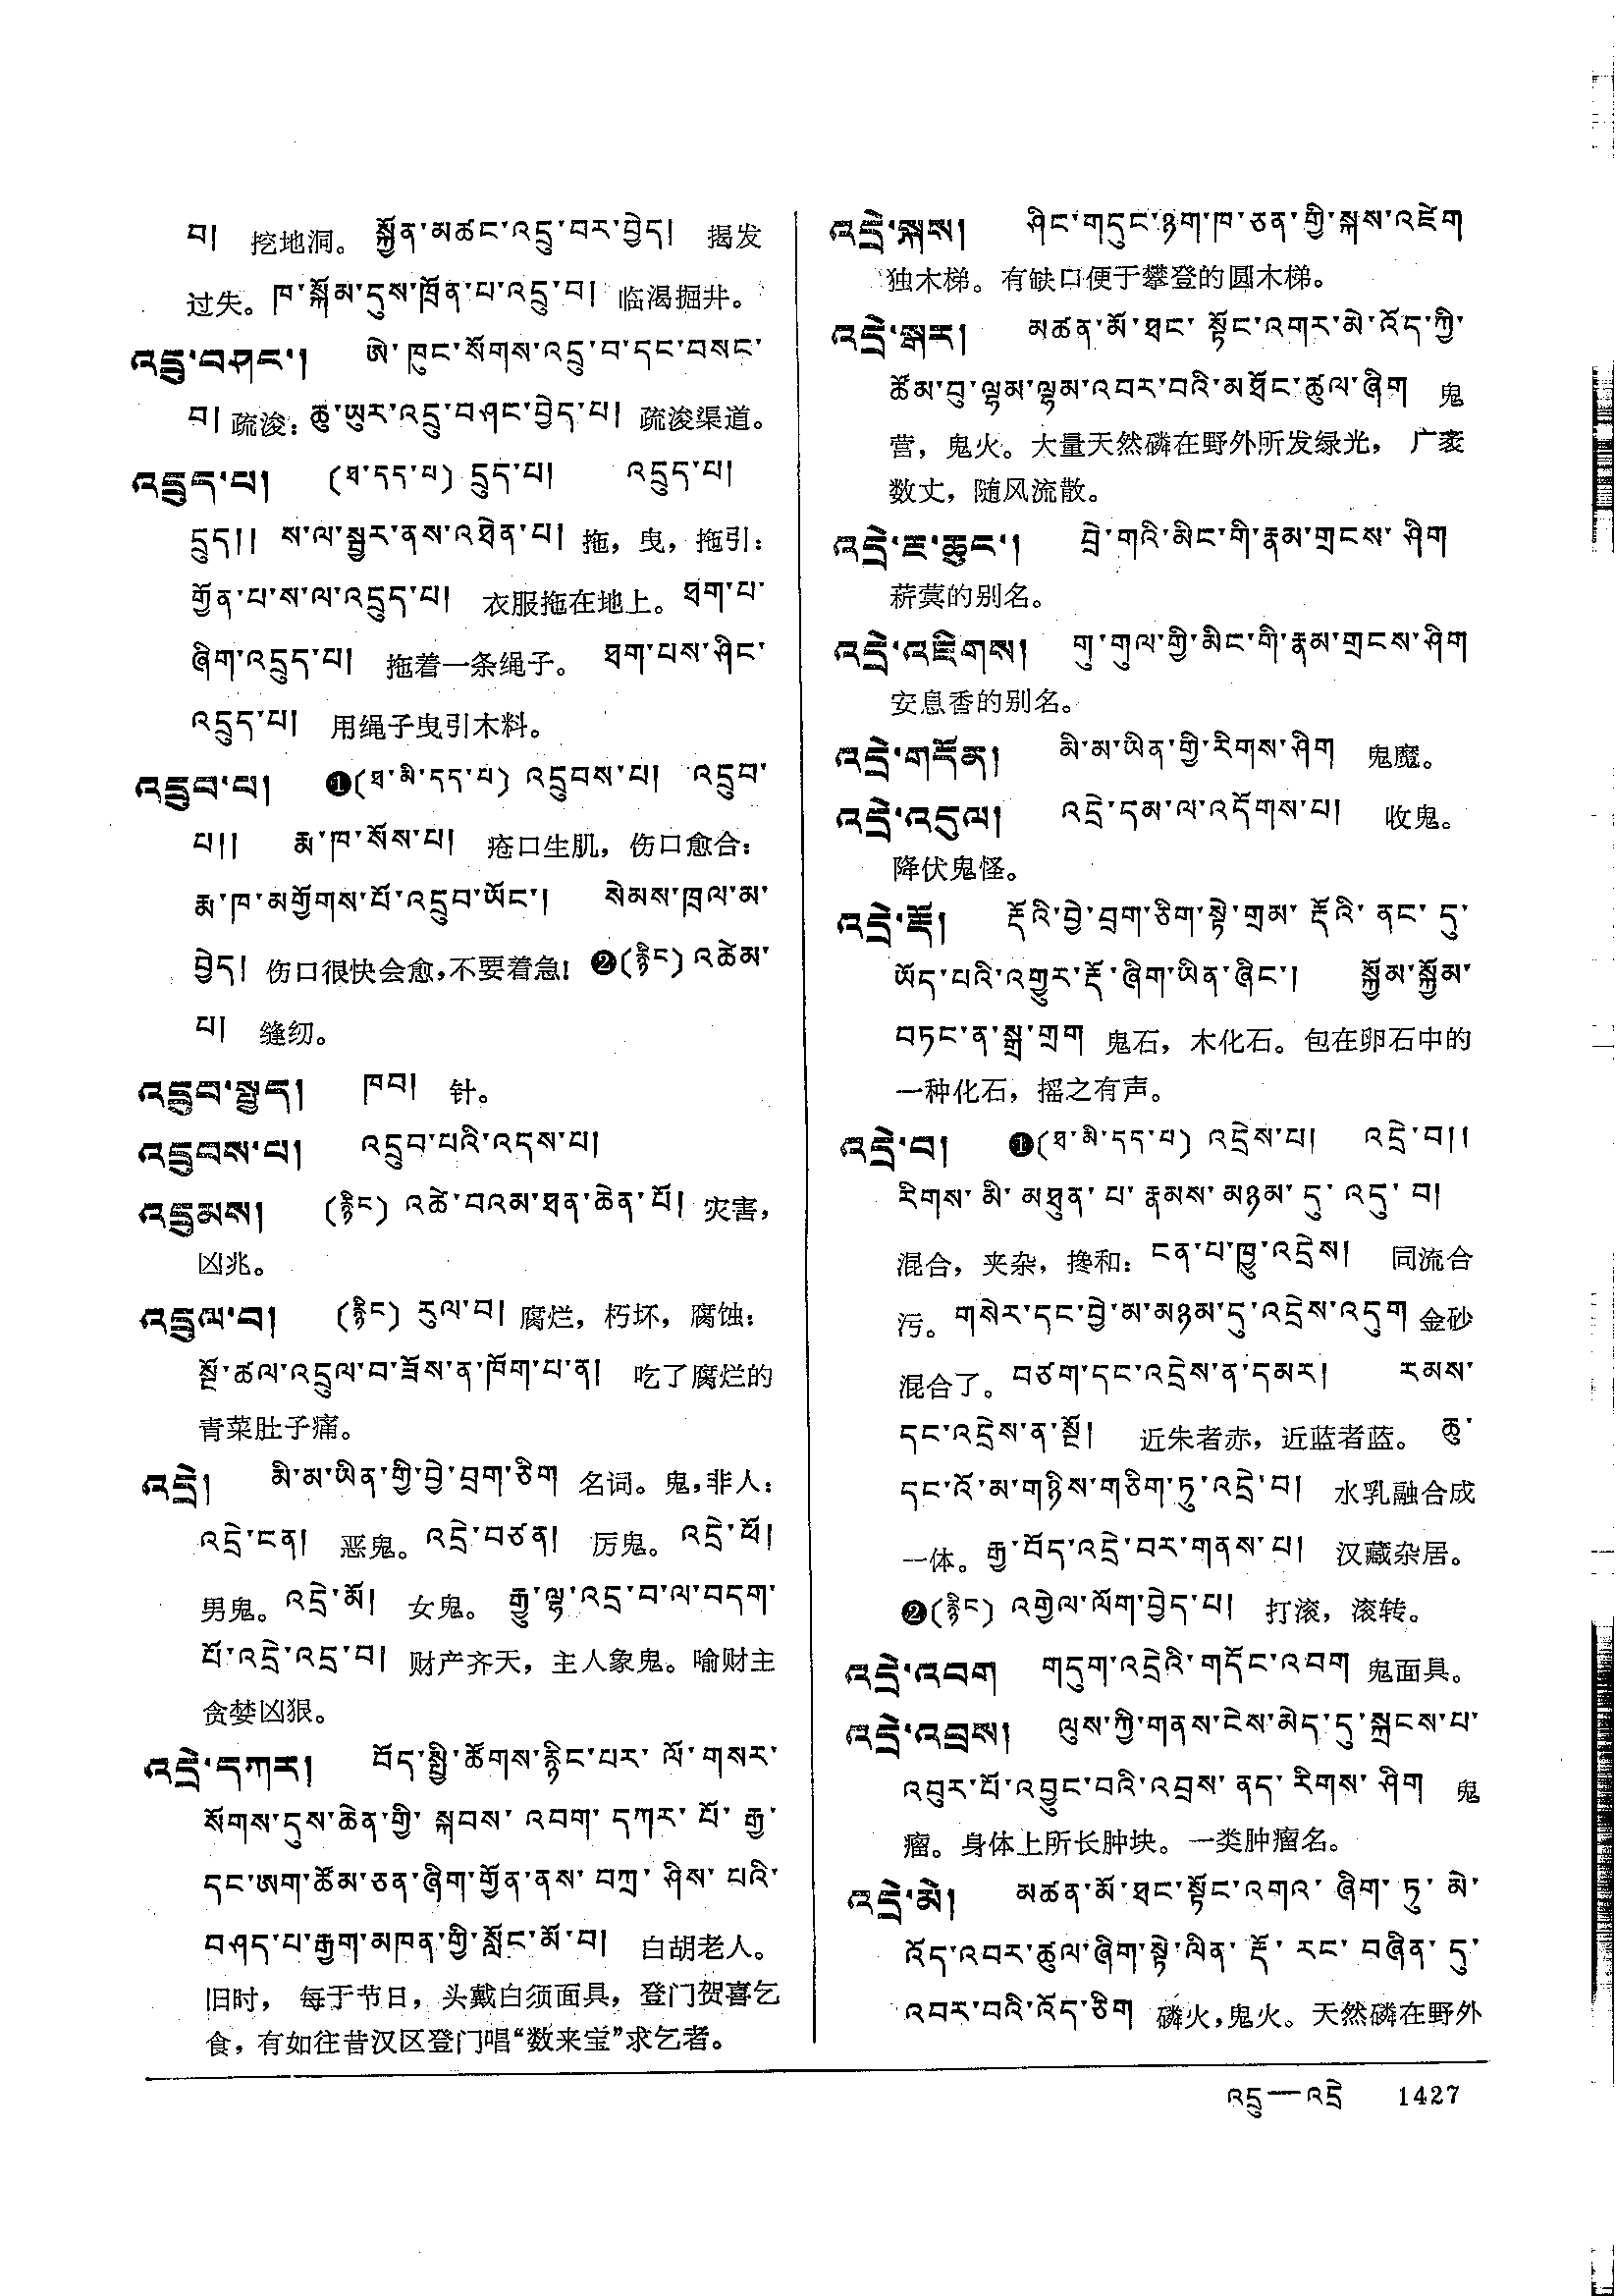 བ། 挖地洞。 སྐྱོན་མཚང་འདྲུ་བར་བྱེད། 揭发
过失。ཁ་སྐོམ་དུས་ཁྲོན་པ་འདྲུ་བ། 临渴掘井。
འདྲུ་བཤང་། ཨེ་ཁུང་སོགས་འདྲུ་བ་དང་བསང་
བ། 疏浚：ཆུ་ཡུར་འདྲུ་བཤང་བྱེད་པ། 疏浚渠道。
འདྲུད་པ། (ཐ་དད་པ) དྲུད་པ། འདྲུད་པ།
དྲུད།། ས་ལ་སྦྱར་ནས་འཐེན་པ། 拖，曳，拖引：
གྱོན་པ་ས་ལ་འདྲུད་པ། 衣服拖在地上。ཐག་པ་
ཞིག་འདྲུད་པ། 拖着一条绳子。 ཐག་པས་ཤིང་
འདྲུད་པ། 用绳子曳引木料。
འདྲུབ་པ། ❶(ཐ་མི་དད་པ) འདྲུབས་པ། འདྲུབ་
པ།། རྨ་ཁ་སོས་པ། 疮口生肌，伤口愈合：
རྨ་ཁ་མགྱོགས་པོ་འདྲུབ་ཡོང་། སེམས་ཁྲལ་མ་
བྱེད། 伤口很快会愈，不要着急！❷(རྙིང) འཚེམ་
པ། 缝纫。
འདྲུབ་སྤྱད། ཁབ། 针。
འདྲུབས་པ། འདྲུབ་པའི་འདས་པ།
འདྲུམས། (རྙིང) འཚེ་བའམ་ཐན་ཆེན་པོ། 灾害，
凶兆。
འདྲུལ་བ། (རྙིང) རུལ་བ། 腐烂，朽坏，腐蚀：
སྔོ་ཚལ་འདྲུལ་བ་ཟོས་ན་ཁོག་པ་ན། 吃了腐烂的
青菜肚子痛。
འདྲེ། མི་མ་ཡིན་གྱི་བྱེ་བྲག་ཅིག 名词。鬼，非人：
འདྲེ་ངན། 恶鬼。འདྲེ་བཙན། 厉鬼。འདྲེ་ཕོ།
男鬼。འདྲེ་མོ། 女鬼。 རྒྱུ་ལྷ་འདྲ་བ་ལ་བདག་
པོ་འདྲེ་འདྲ་བ། 财产齐天，主人象鬼。喻财主
贪婪凶狠。
འདྲེ་དཀར། བོད་སྤྱི་ཚོགས་རྙིང་པར་ ལོ་གསར་
སོགས་དུས་ཆེན་གྱི་ སྐབས་ འབག་ དཀར་ པོ་ རྒྱ་
དང་ཨག་ཚོམ་ཅན་ཞིག་གྱོན་ནས་ བཀྲ་ ཤིས་ པའི་
བཤད་པ་རྒྱག་མཁན་གྱི་སློང་མོ་བ། 白胡老人。
旧时， 每于节日，头戴白须面具，登门贺喜乞
食，有如往昔汉区登门唱“数来宝”求乞者。
འདྲེ་སྐས། ཤིང་གདུང་ཉག་ཁ་ཅན་གྱི་སྐས་འཛེག
独木梯。有缺口便于攀登的圆木梯。
འདྲེ་སྒར། མཚན་མོ་ཐང་ སྟོང་འགར་མེ་འོད་ཀྱི་
ཚོམ་བུ་ལྷམ་ལྷམ་འབར་བའི་མཐོང་ཚུལ་ཞིག 鬼
营，鬼火。大量天然磷在野外所发绿光， 广袤
数丈，随风流散。
འདྲེ་ཇ་ཆུང་། བྲེ་གའི་མིང་གི་རྣམ་གྲངས་ ཤིག
菥蓂的别名。
འདྲེ་འཇིགས། གུ་གུལ་གྱི་མིང་གི་རྣམ་གྲངས་ཤིག
安息香的别名。
འདྲེ་གདོན། མི་མ་ཡིན་གྱི་རིགས་ཤིག 鬼魔。
འདྲེ་འདུལ། འདྲེ་དམ་ལ་འདོགས་པ། 收鬼。
降伏鬼怪。
འདྲེ་རྡོ། རྡོའི་བྱེ་བྲག་ཅིག་སྟེ་གྲམ་ རྡོའི་ ནང་ དུ་
ཡོད་པའི་འགྱུར་རྡོ་ཞིག་ཡིན་ཞིང་། སྐྱོམ་སྐྱོམ་
བཏང་ན་སྒྲ་གྲག 鬼石，木化石。包在卵石中的
一种化石，摇之有声。
འདྲེ་བ། ❶(ཐ་མི་དད་པ) འདྲེས་པ། འདྲེ་བ།།
རིགས་ མི་ མཐུན་ པ་ རྣམས་ མཉམ་ དུ་ འདུ་ བ།
混合，夹杂，搀和：ངན་པ་ཁྱུ་འདྲེས། 同流合
污。གསེར་དང་བྱེ་མ་མཉམ་དུ་འདྲེས་འདུག 金砂
混合了。བཙག་དང་འདྲེས་ན་དམར། རམས་
དང་འདྲེས་ན་སྔོ། 近朱者赤，近蓝者蓝。 ཆུ་
དང་འོ་མ་གཉིས་གཅིག་ཏུ་འདྲེ་བ། 水乳融合成
一体。རྒྱ་བོད་འདྲེ་བར་གནས་པ། 汉藏杂居。
❷(རྙིང) འགྱེལ་ལོག་བྱེད་པ། 打滚，滚转。
འདྲེ་འབག གདུག་འདྲེའི་གདོང་འབག 鬼面具。
འདྲེ་འབྲས། ལུས་ཀྱི་གནས་ངེས་མེད་དུ་སྐྲངས་པ་
འབུར་པོ་འབྱུང་བའི་འབྲས་ ནད་ རིགས་ ཤིག 鬼
瘤。身体上所长肿块。一类肿瘤名。
འདྲེ་མེ། མཚན་མོ་ཐང་སྟོང་འགའ་ ཞིག་ ཏུ་ མེ་
འོད་འབར་ཚུལ་ཞིག་སྟེ་ལིན་ རྡོ་ རང་ བཞིན་ དུ་
འབར་བའི་འོད་ཅིག 磷火，鬼火。天然磷在野外
འདྲུ—འདྲེ 1427